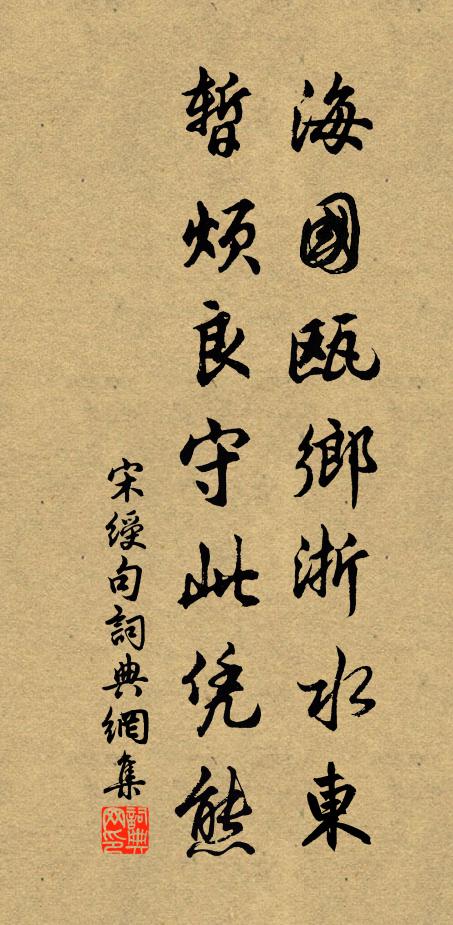 海國甌鄉浙水東
暫煩良守此凭熊
宋綬句詞典網集
詞典网印